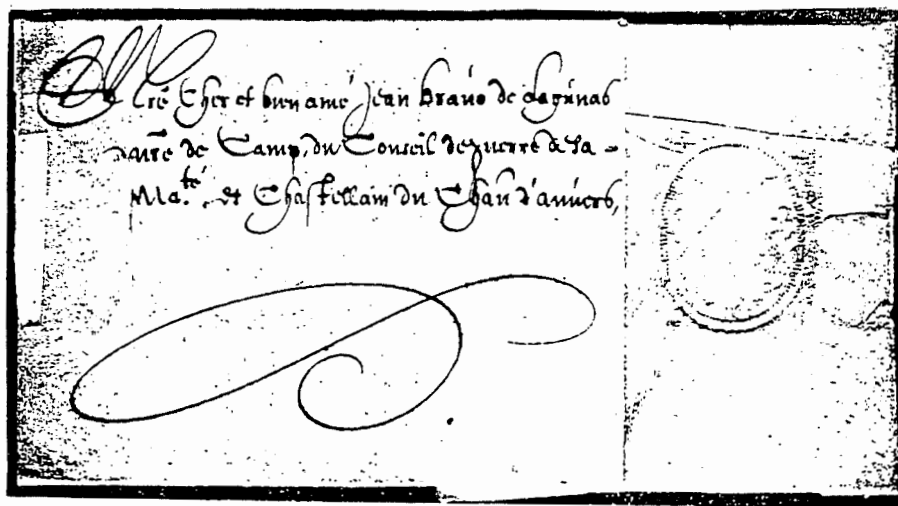 A nr̄e Cher et bien amé Jean Bravo de Lagunas
mr̄e de Camp, du Conseil de guerre de sa
Ma.té et Chastellain du Chāu d'anvers,